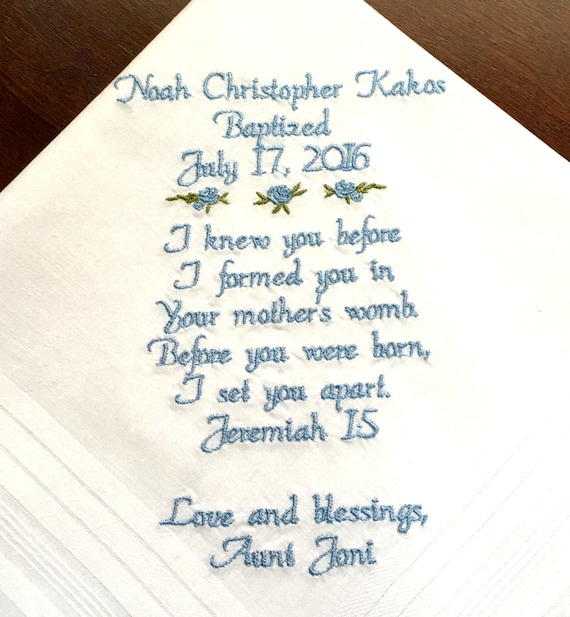 Noah Christopher Kakos
Baptized
July 17, 2016
I knew you before
I formed you in
Your mother's womb.
Before you were born,
I set you apart.
Jeremiah 1:5
Love and blessings,
Aunt Joni